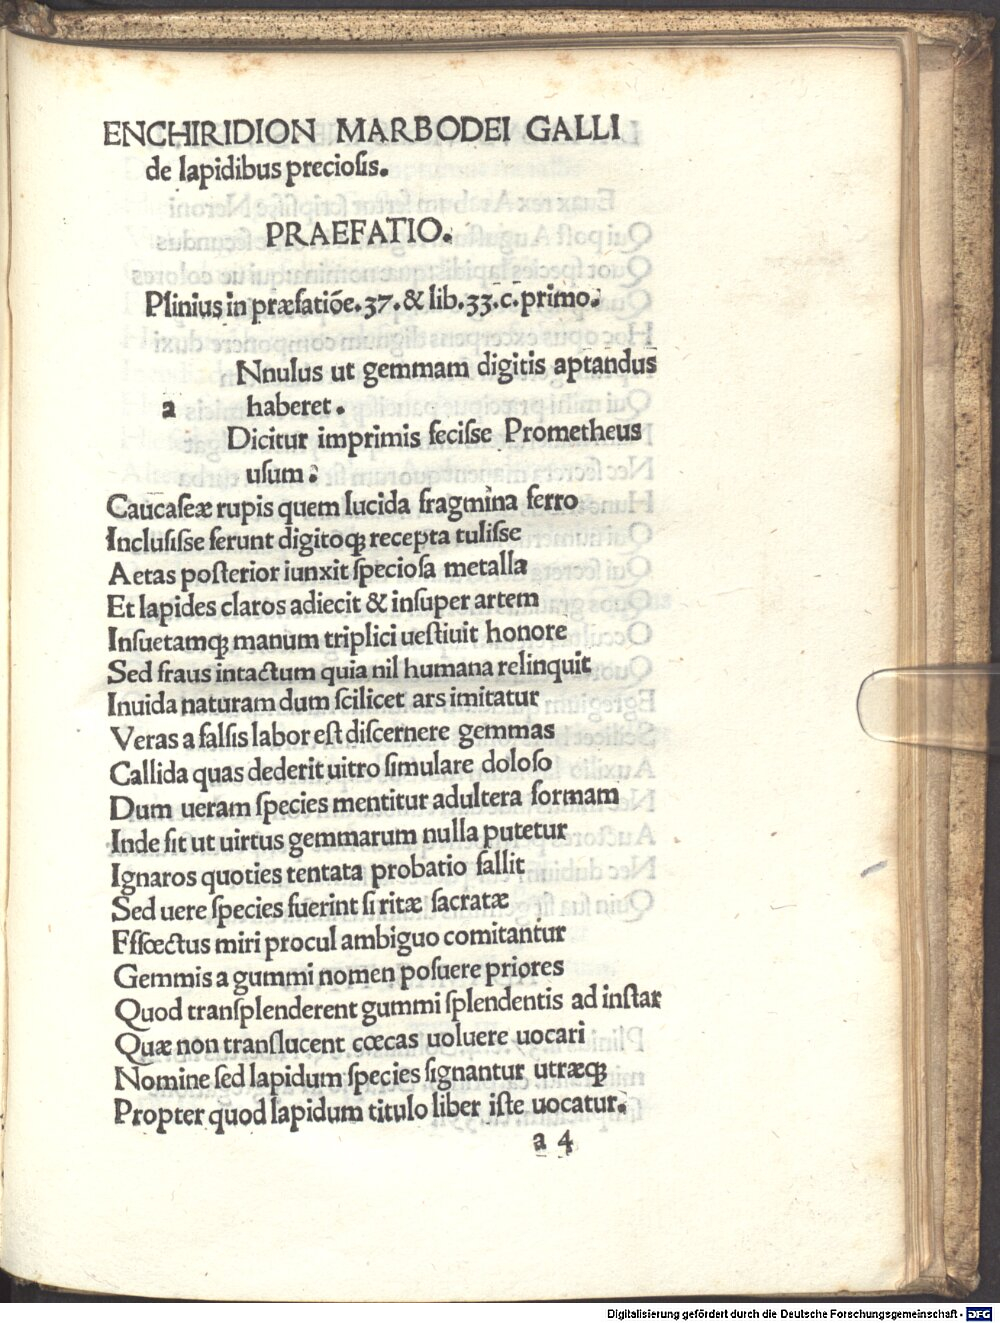 ENCHIRIDION MARBODEI GALLI
de lapidibus preciosis.
PRAEFATIO.
Plinius in præfatiõe.37.& lib.33.c.primo.
Nnulus ut gemmam digitis aptandus
a haberet.
Dicitur imprimis fecisse Prometheus
usum:
Caucaseæ rupis quem lucida fragmina ferro
Inclusisse ferunt digitoqꝫ recepta tulisse
Aetas posterior iunxit speciosa metalla
Et lapides claros adiecit & insuper artem
Insuetamqꝫ manum triplici uestiuit honore
Sed fraus intactum quia nil humana relinquit
Inuida naturam dum scilicet ars imitatur
Veras a falsis labor est discernere gemmas
Callida quas dederit uitro simulare doloso
Dum ueram species mentitur adultera formam
Inde fit ut uirtus gemmarum nulla putetur
Ignaros quoties tentata probatio fallit
Sed uere species fuerint si ritæ sacratæ
Effœctus miri procul ambiguo comitantur
Gemmis a gummi nomen posuere priores
Quod transplenderent gummi splendentis ad instar
Quæ non translucent cœcas uoluere uocari
Nomine sed lapidum species signantur utræqꝫ
Propter quod lapidum titulo liber iste uocatur.
a 4
Digitalisierung gefördert durch die Deutsche Forschungsgemeinschaft - DFG